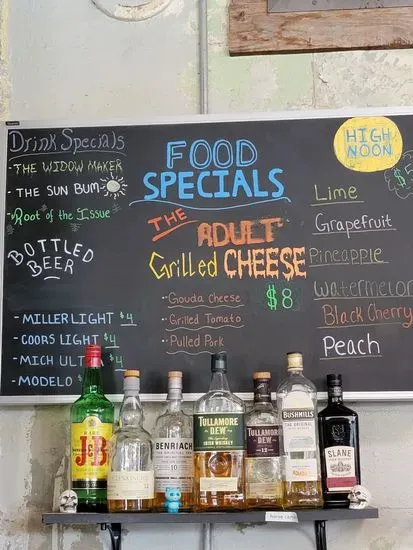 Drink Specials
- THE WIDOW MAKER
- THE SUN BUM
- Root of the Issue
BOTTLED
BEER
- MILLER LIGHT $4
- COORS LIGHT $4
- MICH ULTRA $4
- MODELO $
FOOD
SPECIALS
THE
ADULT
Grilled CHEESE
$8
- Gouda cheese
- Grilled Tomato
- Pulled Pork
HIGH
NOON
$5
Lime
Grapefruit
Pineapple
Watermelon
Black Cherry
Peach
RARE
J&B
BENRIACH
THE ORIGINAL
10
TULLAMORE
DEW
IRISH WHISKEY
TULLAMORE
DEW
12
BUSHMILLS
THE ORIGINAL
SLANE